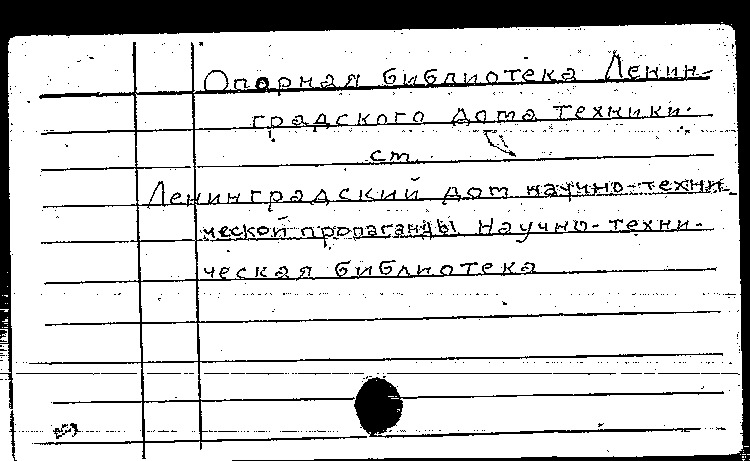 Опорная библиотека Ленин-
градского дома техники.
ст.
Ленинградский дом научно-техни-
ческой пропаганды Научно-техни-
ческая библиотека